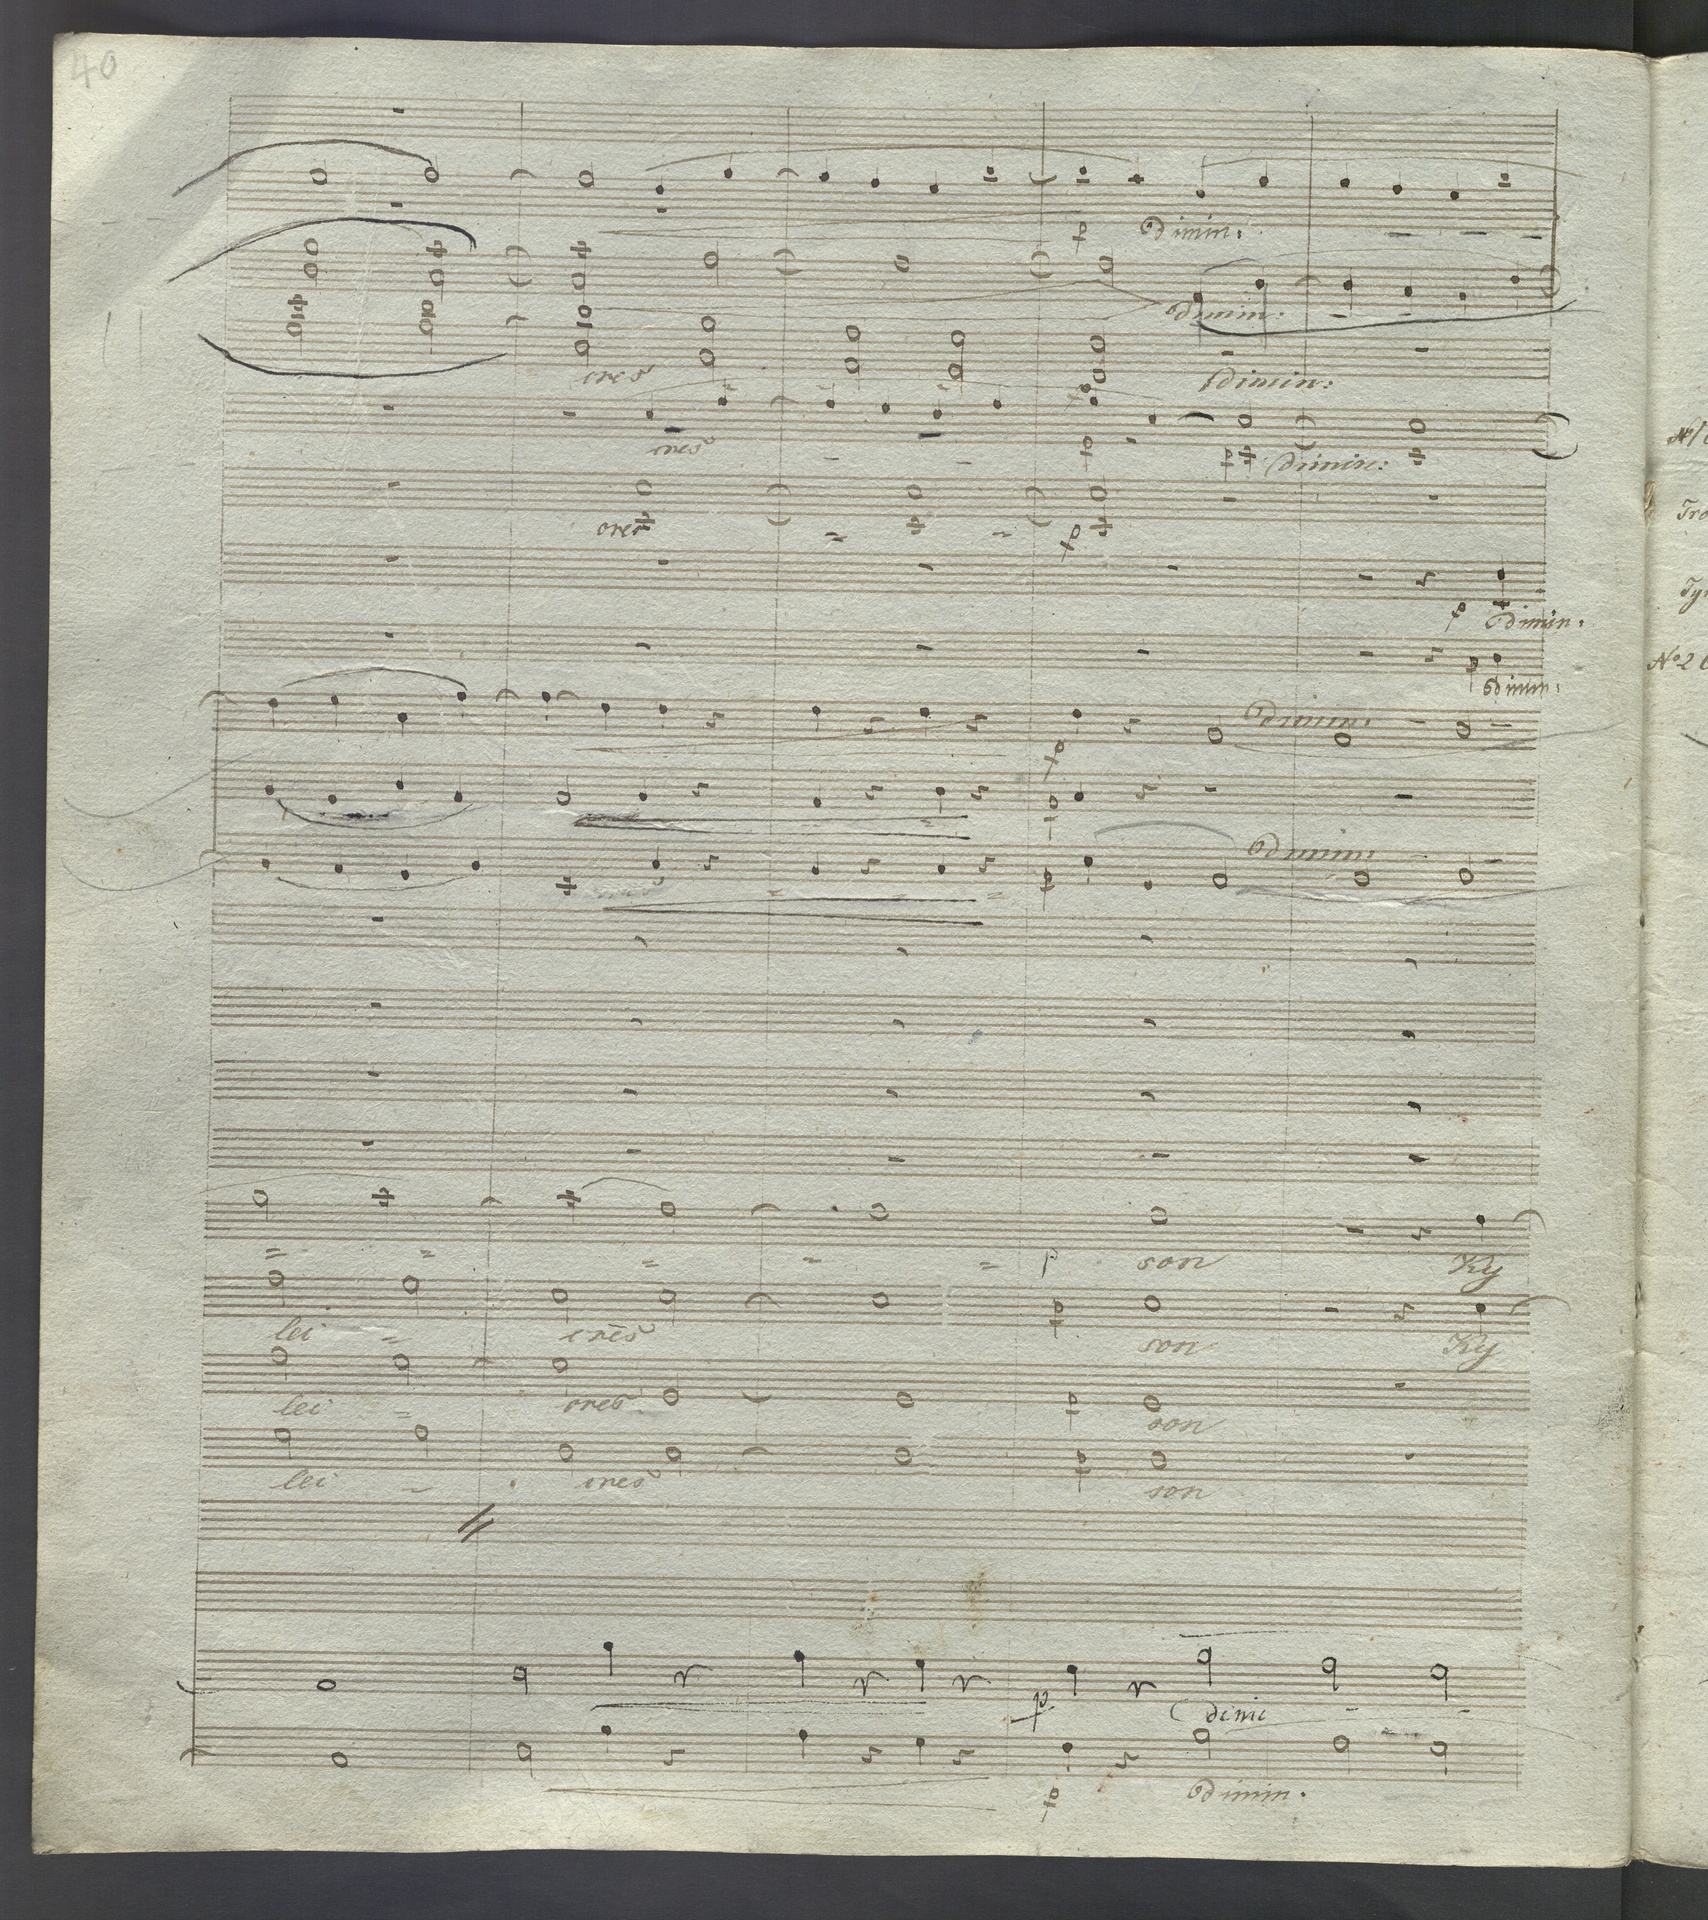 40
p Dimin:
Dimin:
cres Dimin:
cres p Dimin:
N
cres p
Tro
p Dimin.
Ty
p Dimin:
No 2
p Dimin:
p
cres p Dimin:
p son Ky
lei cres p son Ky
lei cres p son
lei cres p son
p dimi
p Dimin.